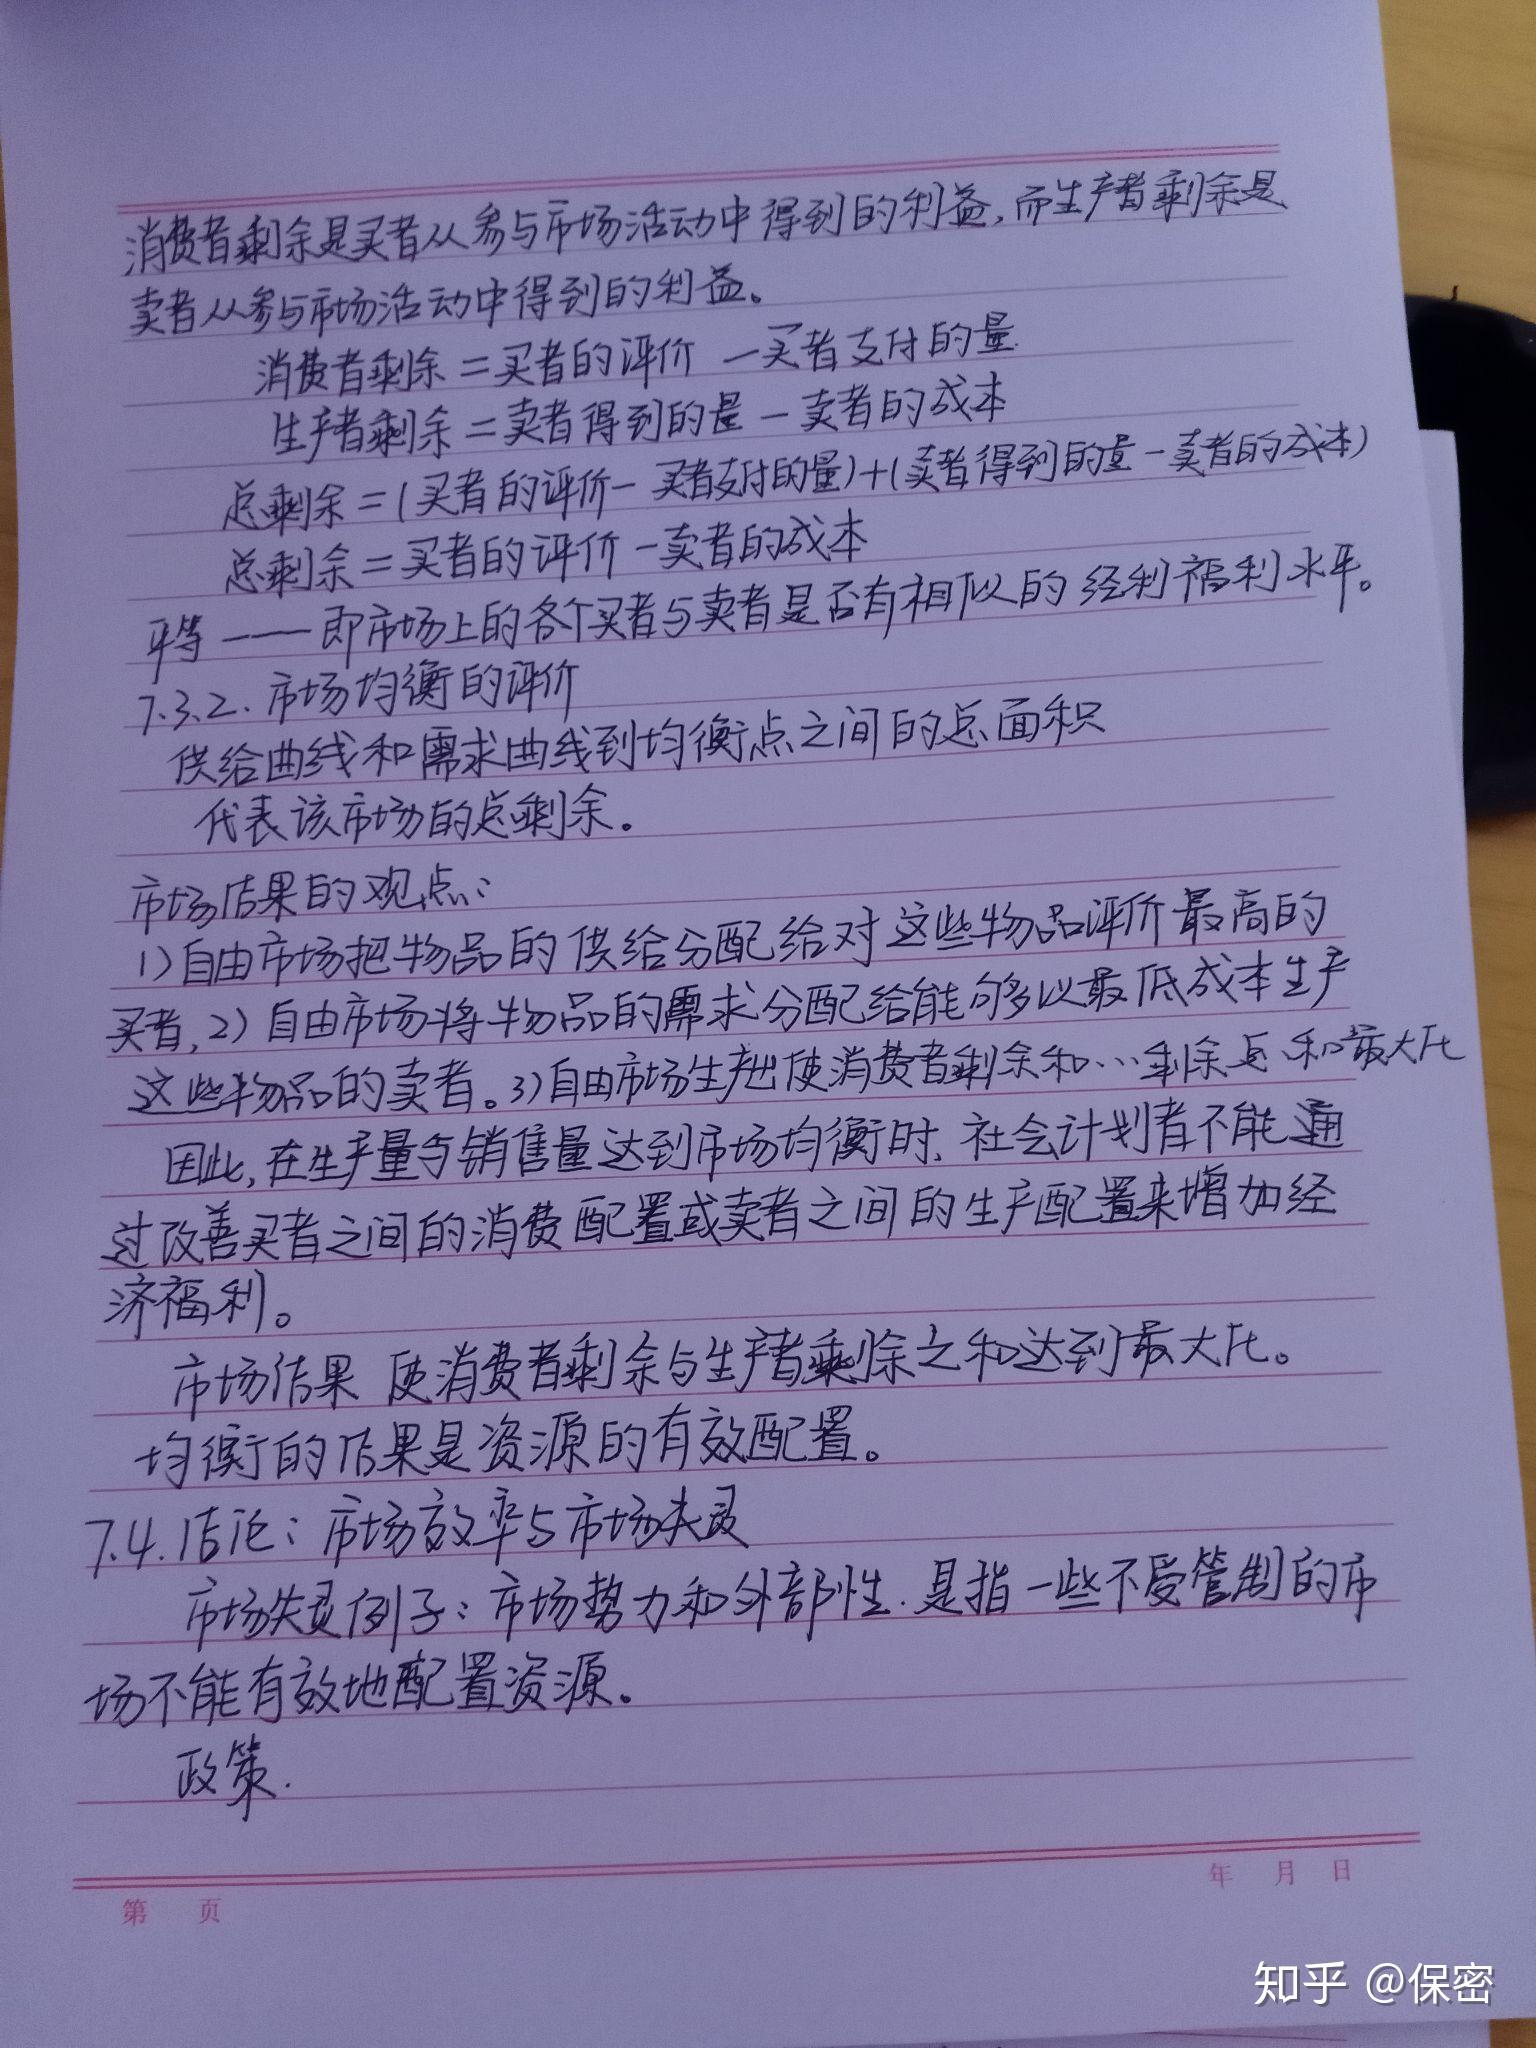 消费者剩余是买者从参与市场活动中得到的利益,而生产者剩余是
卖者从参与市场活动中得到的利益。
消费者剩余=买者的评价-买者支付的量
生产者剩余=卖者得到的量-卖者的成本
总剩余=(买者的评价-买者支付的量)+(卖者得到的量-卖者的成本)
总剩余=买者的评价-卖者的成本
平等——即市场上的各个买者与卖者是否有相似的经利福利水平。
7.3.2.市场均衡的评价
供给曲线和需求曲线到均衡点之间的总面积
代表该市场的总剩余。
市场结果的观点:
1)自由市场把物品的供给分配给对这些物品评价最高的
买者,2)自由市场将物品的需求分配给能够以最低成本生产
这些物品的卖者。3)自由市场生产出使消费者剩余和…剩余总和最大化
因此,在生产量与销售量达到市场均衡时、社会计划者不能通
过改善买者之间的消费配置或卖者之间的生产配置来增加经
济福利。
市场结果 使消费者剩余与生产者剩余之和达到最大化。
均衡的结果是资源的有效配置。
7.4.结论:市场效率与市场失灵
市场失灵例子:市场势力和外部性.是指一些不受管制的市
场不能有效地配置资源。
政策.
第 页
年 月 日
知乎 @保密